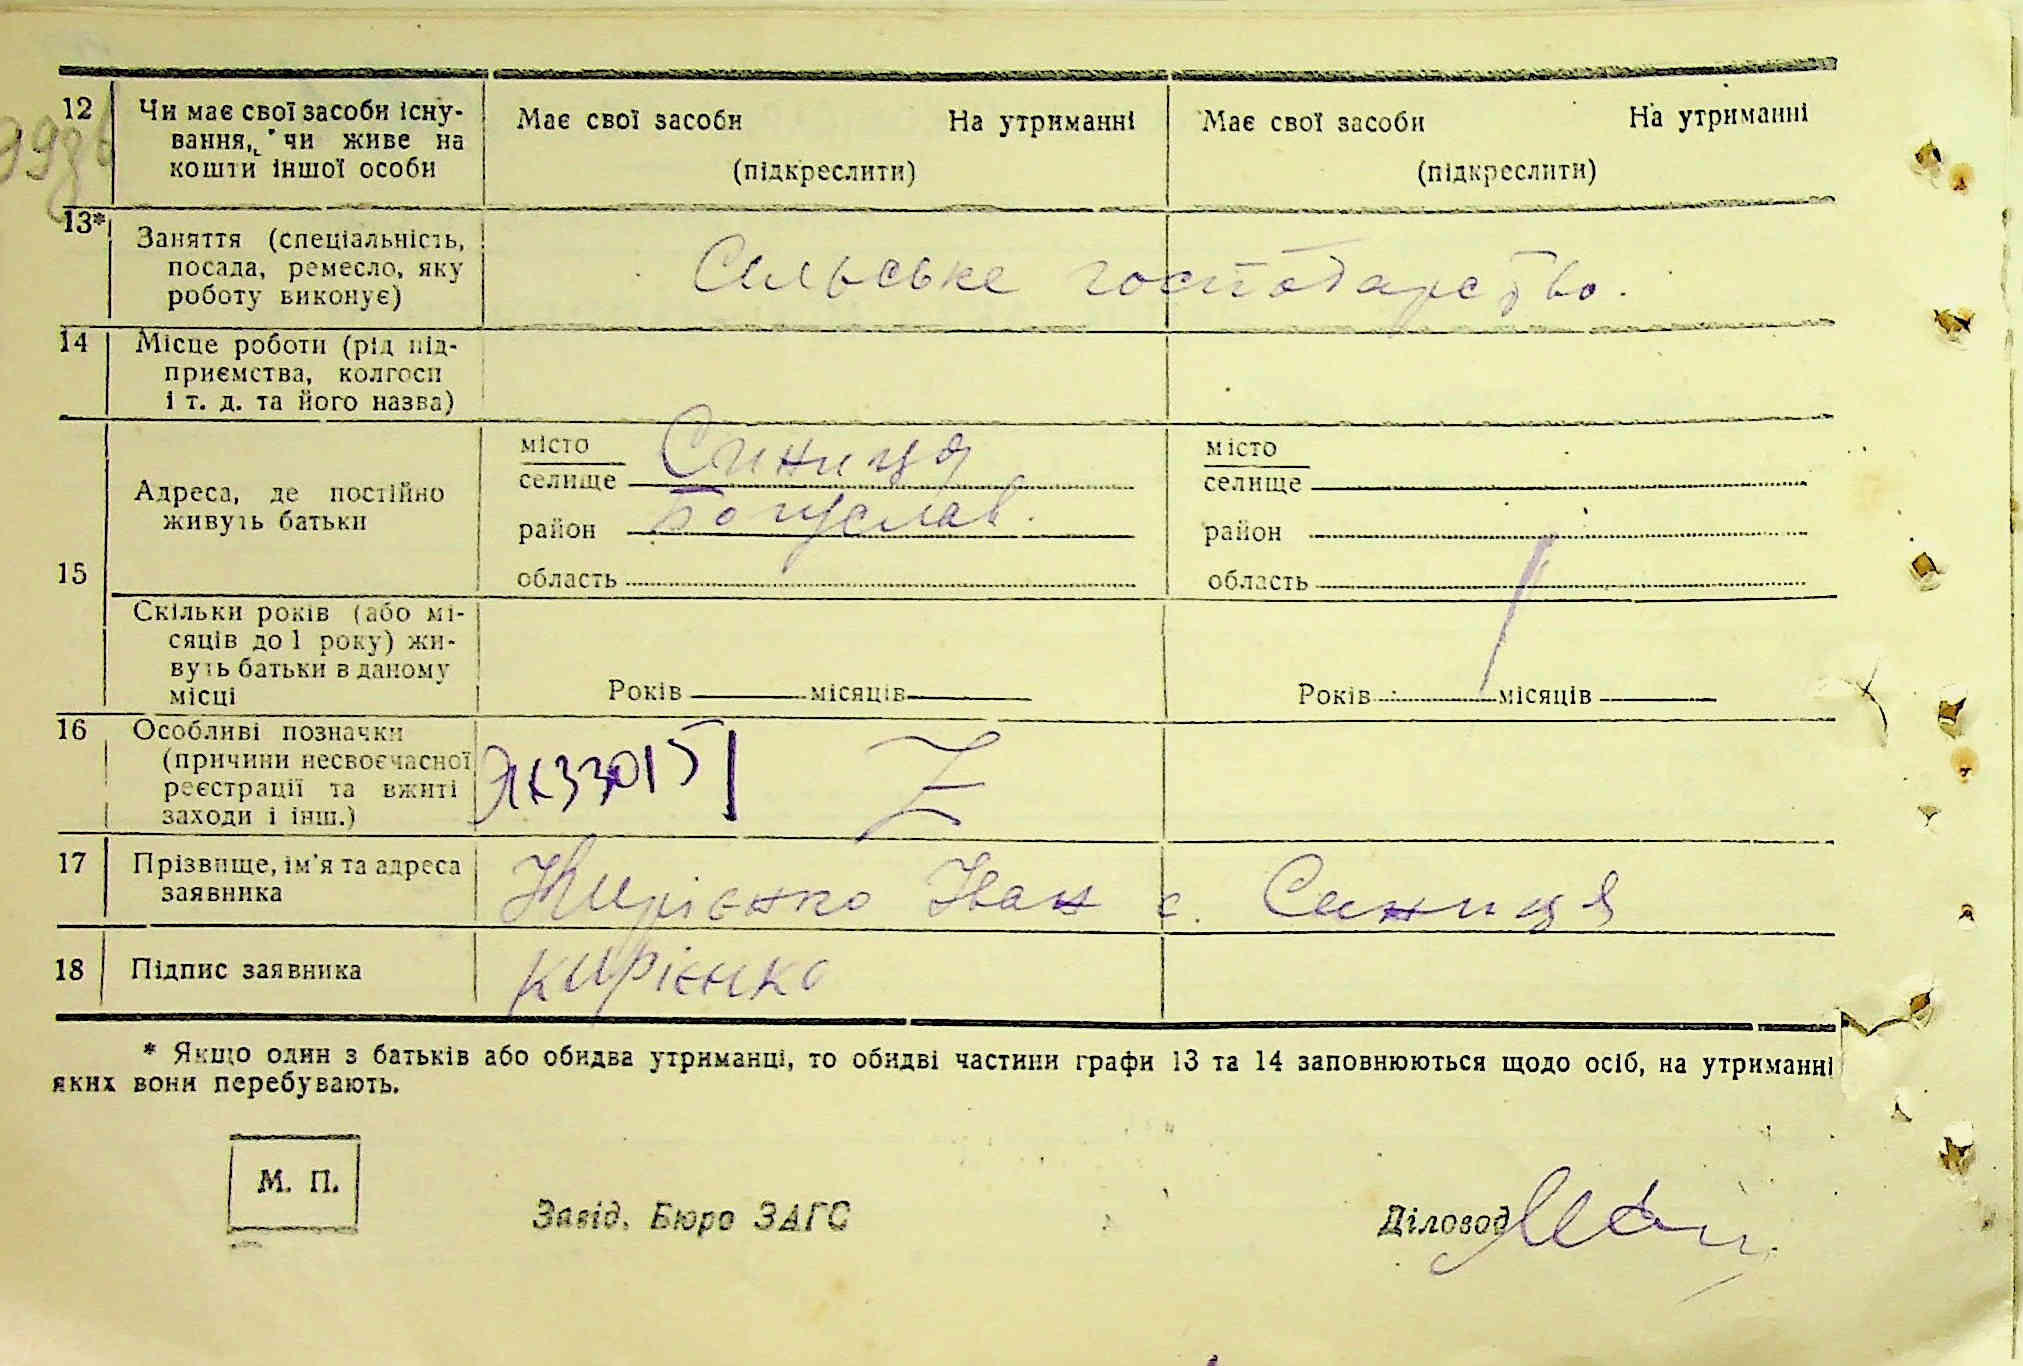 12 Чи має свої засоби існу-
вання, чи живе на
кошти іншої особи
Має свої засоби На утриманні
(підкреслити)
Має свої засоби На утриманні
(підкреслити)
13* Заняття (спеціальність,
посада, ремесло, яку
роботу виконує)
Сельське господарство.
14 Місце роботи (рід під-
приємства, колгосп
і т. д. та його назва)
15
Адреса, де постійно
живуть батьки
місто
селище Синиця
район Богуслав.
область
місто
селище
район
область
Скільки років (або мі-
сяців до 1 року) жи-
вуть батьки в даному
місці
Років місяців
Років місяців
16 Особливі позначки
(причини несвоєчасної
реєстрації та вжиті
заходи і інш.)
17 Прізвище, ім'я та адреса
заявника
Кирієнко Іван с. Синиця
18 Підпис заявника
Кирієнко
* Якщо один з батьків або обидва утриманці, то обидві частини графи 13 та 14 заповнюються щодо осіб, на утриманні
яких вони перебувають.
М. П.
Завід. Бюро ЗАГС
Діловод